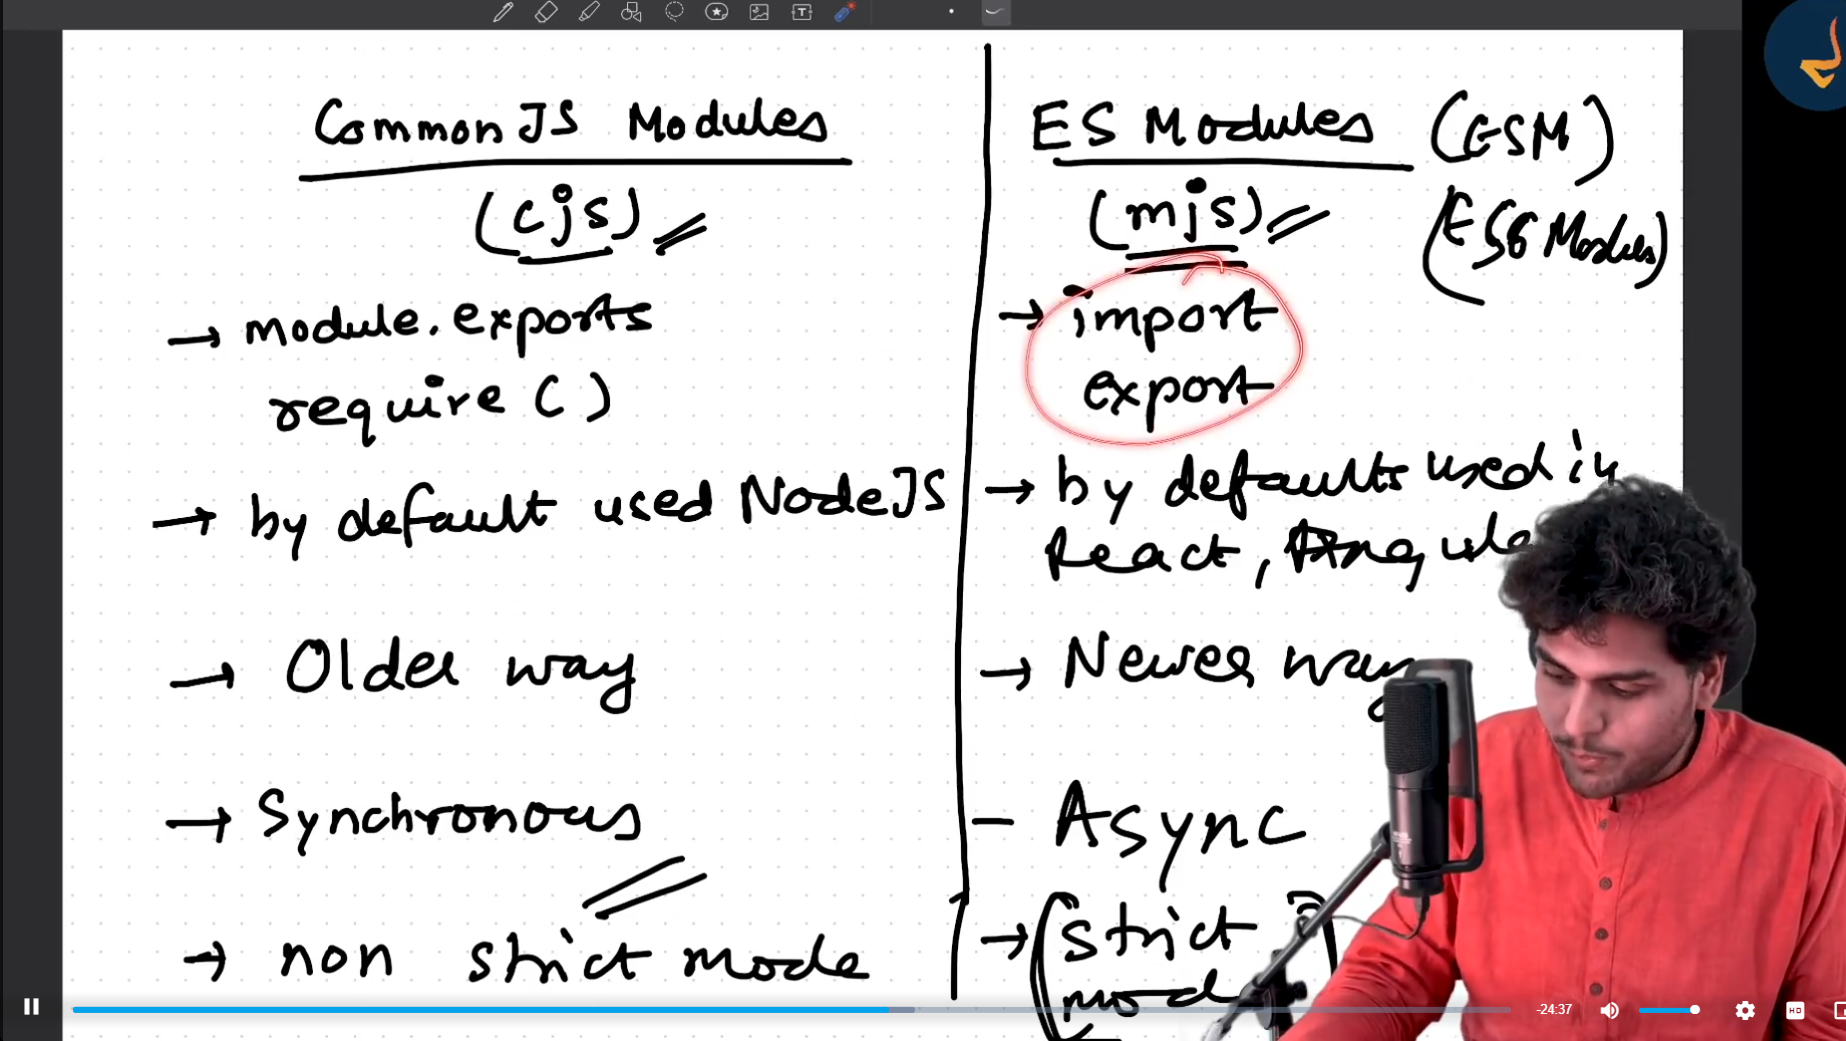 CommonJS Modules
(cjs)
→ module.exports
require ( )
→ by default used NodeJS
→ Older way
→ Synchronous
→ non strict mode
ES Modules (ESM)
(mjs) (ES6 Modules)
→ import
export
→ by defaults used in
React, Angular
→ Newer way
- Async
→ (strict
mode
-24:37
HD